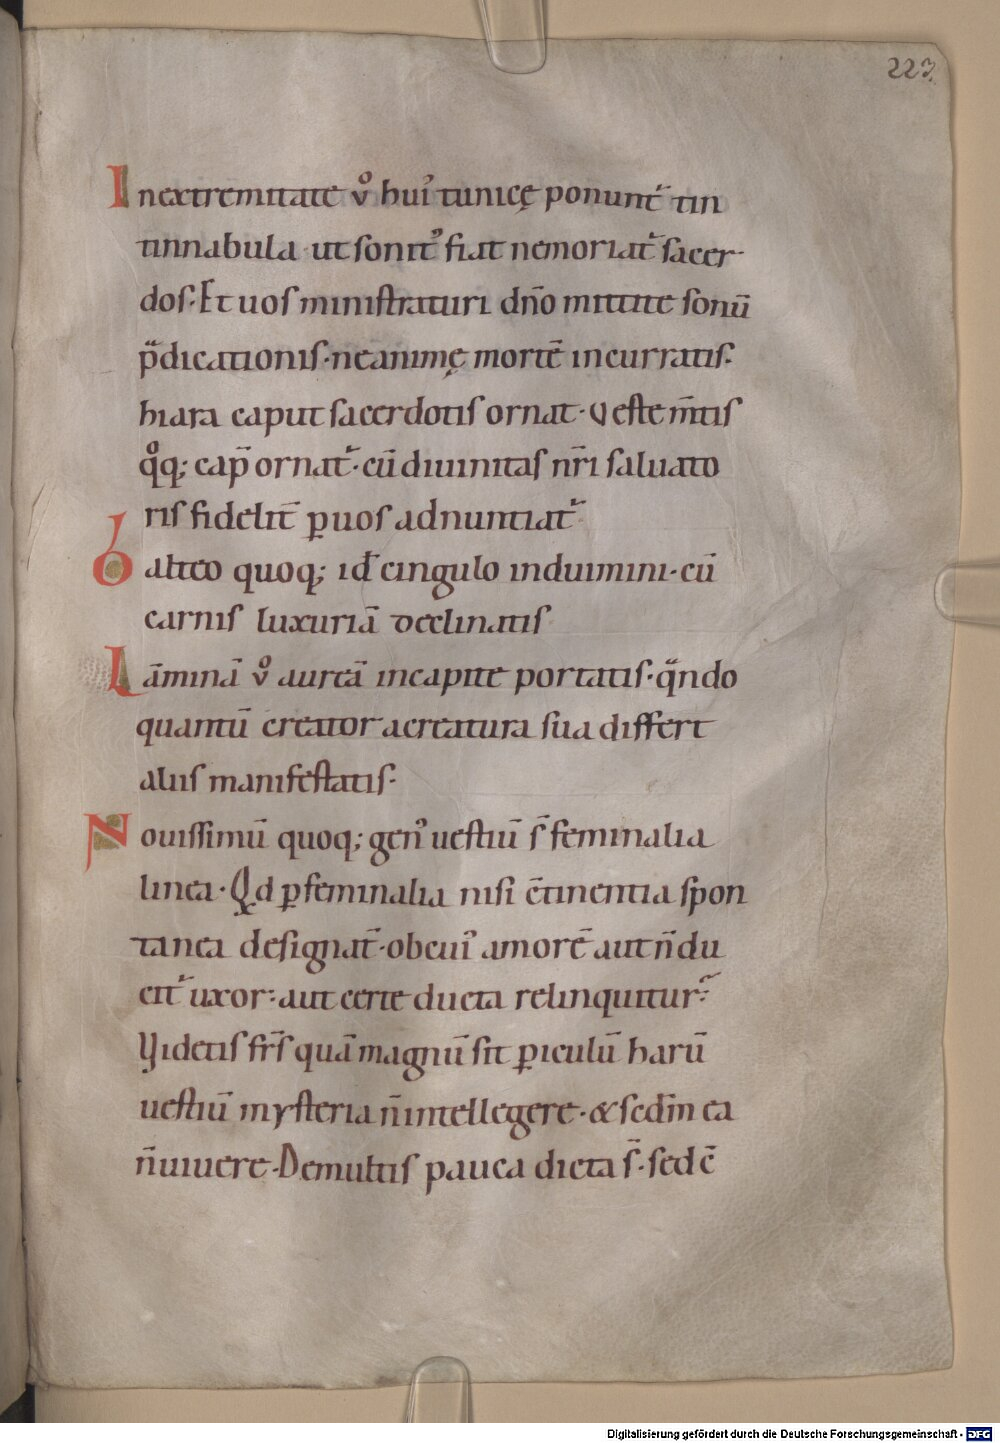 223.
In extremitate v̊ hui᾽ tunicę ponunt᷑ tin
tinnabula · ut sonit᾽ fiat ne moriat᷑ sacer-
dos· Et uos ministraturi dn̄o mittite sonū
p̄dicationis · ne animę mortē incurratis·
hiara caput sacerdotis ornat · Veste m̄tis
q̊q; cap̄ ornat᷑ · cū diuinitas nr̄i saluato
ris fidelit̄ ꝑ uos adnuntiat᷑
balteo quoq; id ̄ cingulo induimini · cū
carnis luxuriā declinatis
Lāminā v̊ aureā in capite portatis · qͣndo
quantū creator a creatura sua differt
aliis manifestatis·
Nouissimū quoq; gen᾽ uestiū s̄ feminalia
linea · Qd ꝑ feminalia nisi c̄tinentia spon
tanea designat᷑ · ob cui᾽ amorē aut n̄ du
cit᷑ uxor · aut certe ducta relinquitur·
Videtis fr̄s quā magnū sit ꝑiculū harū
uestiū mysteria n̄ intellegere · & sedm̄ ea
n̄ uiuere · De multis pauca dicta s̄ · sed c̄
Digitalisierung gefördert durch die Deutsche Forschungsgemeinschaft - DFG